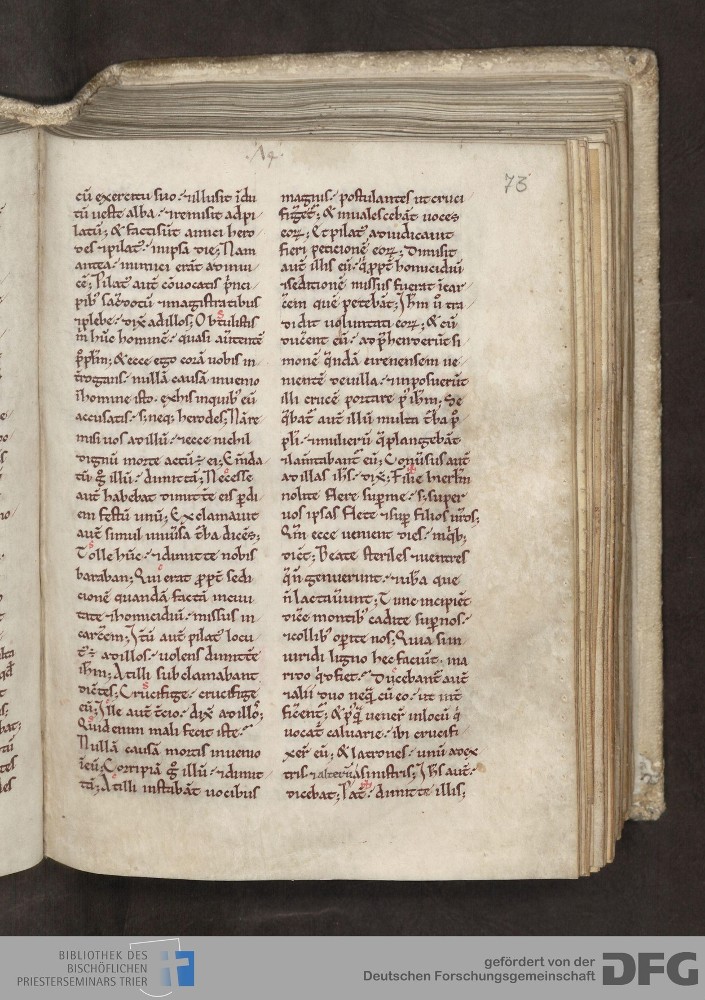 73
cū exercitu suo· ⁊ illusit īdu
tū ueste alba· ⁊ remisit ad pi
latū; & facti sūt amici hero
des ⁊ pilat᷒ in ipsa die; Nam
antea inimici erāt ad inui
cē; Pilat᷒ aut̄ cōuocatis p̄nci
pib᷒ sac̄dotū ⁊ magistratibus
⁊ plebe· dix̄ ad illos; Obtulistis
m̄ hūc hominē· quasi au̾tentē
pp̄l̄m; & ecce ego corā uobis in
t̄rogans· nullā causā inuenio
ī homine isto· ex his in quib᷒ eū
accusatis· s; neq; herodes; Nā re
misi uos ad illū· ⁊ ecce nichil
dignū morte actū ÷ ei; Em̄da
tū g̊ illū· dimittā; Necesse
aut̄ habebat dimitt̄e eis p̱ di
em festū unū; Exclamauit
aut̄ simul uniūsa t̄ba dicēs;
Tolle hūc· ⁊ dimitte nobis
baraban; Qui erat p̱pt̄ sedi
cionē quandā factā in ciui
tate ⁊ homicidiū· missus in
carc̄em; It̄ū aut̄ pilat᷒ locu
t᷒ ÷ ad illos· uolens dimitt̄e
ih̄m; At illi subclamabant
dic̄tes; Crucifige· crucifige
eū; Ille aut̄ t̄cio· dix̄ ad illos;
Quid enim mali fecit iste·
Nullā causā mortis inuenio
ī eū; Corripiā g̊ illū· ⁊ dimit
tā; At illi instabāt uocibus
magnis· postulantes ut cruci
figet̄; & inualescebāt uoces
eoꝝ; Et pilat᷒ adiudicauit
fieri peticionē eoꝝ; Dimisit
aut̄ illis eū· q̱ p̱pt̄ homicidiū
⁊ seditionē missus fuerat ī car
c̄em quē petebāt; Ih̄m ū tra
didit uoluntati eoꝝ; & cū
duc̄ent eū· adp̄hender̄ut si
monē q̄ndā cirenensem ue
nientē de uilla· ⁊ inposuer̄ut
illi crucē portare p̱ ih̄m; Se
q̄bat᷒ aut̄ illū multa t̄ba p̱
pl̄i· ⁊ mulierū q̄ plangebāt
⁊ lam̄tabant᷒ eū; Conūsus aut̄
ad illas ih̄s· dix̄; Filie hierl̄m
nolite flere sup̱ me· s; super
uos ipsas flete ⁊ sup̱ filios ūros;
Qm̄ ecce uenient dies· in q̄b;
dic̄t; Beate steriles ⁊ uentres
q̄ ñ genuerunt· ⁊ ub̄a que
ñ lactaūunt; Tunc incipiēt
dic̄e montib᷒ cadite sup̱ nos·
⁊ collib᷒ op̱ite nos; Quia si in
uiridi ligno hec faciūt· in a
rido q̄d fiet· Ducebant᷒ aut̄
⁊ alii duo neq̄ cū eo· ut int̄
ficer̄ent᷒; & p᷒q̄ uener̄ in locū q̄
uocat᷒ caluarie· ibi crucifi
xer̄ eū; & latrones· unū a dex
tris ⁊ alterū a sinistris; Ih̄s aut̄·
dicebat; Pat̄· dimitte illis;
BIBLIOTHEK DES
BISCHÖFLICHEN
PRIESTERSEMINARS TRIER
gefördert von der
Deutschen Forschungsgemeinschaft
DFG